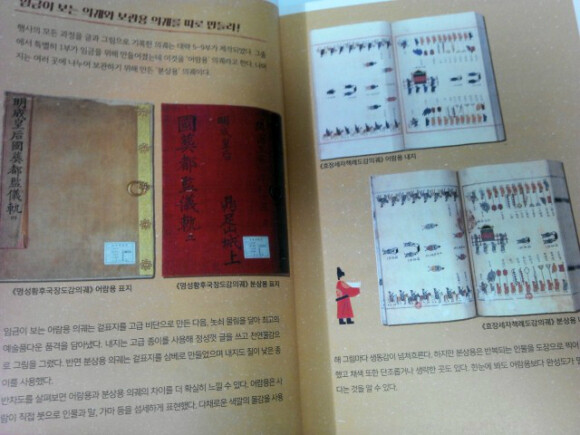 임금이 보는 의궤와 보관용 의궤를 따로 만들라!
행사의 모든 과정을 글과 그림으로 기록한 의궤는 대략 5~9부가 제작되었다. 그중
에서 특별히 1부가 임금을 위해 만들어졌는데 이것을 '어람용' 의궤라고 한다. 나머
지는 여러 곳에 나누어 보관하기 위해 만든 '분상용' 의궤이다.
明成皇后國葬都監儀軌
明成皇后
國葬都監儀軌 二
五臺山城上
《명성황후국장도감의궤》 어람용 표지
《명성황후국장도감의궤》 분상용 표지
임금이 보는 어람용 의궤는 겉표지를 고급 비단으로 만든 다음, 놋쇠 물림을 달아 최고의
예술품다운 품격을 담아냈다. 내지는 고급 종이를 사용해 정성껏 글을 쓰고 천연물감으
로 그림을 그렸다. 반면 분상용 의궤는 겉표지를 삼베로 만들었으며 내지도 질이 낮은 종
이를 사용했다.
반차도를 살펴보면 어람용과 분상용 의궤의 차이를 더 확실히 느낄 수 있다. 어람용은 사
람이 직접 붓으로 인물과 말, 가마 등을 섬세하게 표현했다. 다채로운 색깔의 물감을 사용
《효장세자책례도감의궤》 어람용 내지
《효장세자책례도감의궤》 분상용 내
해 그림마다 생동감이 넘쳐흐른다. 하지만 분상용은 반복되는 인물을 도장으로 찍어
했고 채색 또한 단조롭거나 생략한 곳도 있다. 한눈에 봐도 어람용보다 완성도가 떨
다는 것을 알 수 있다.